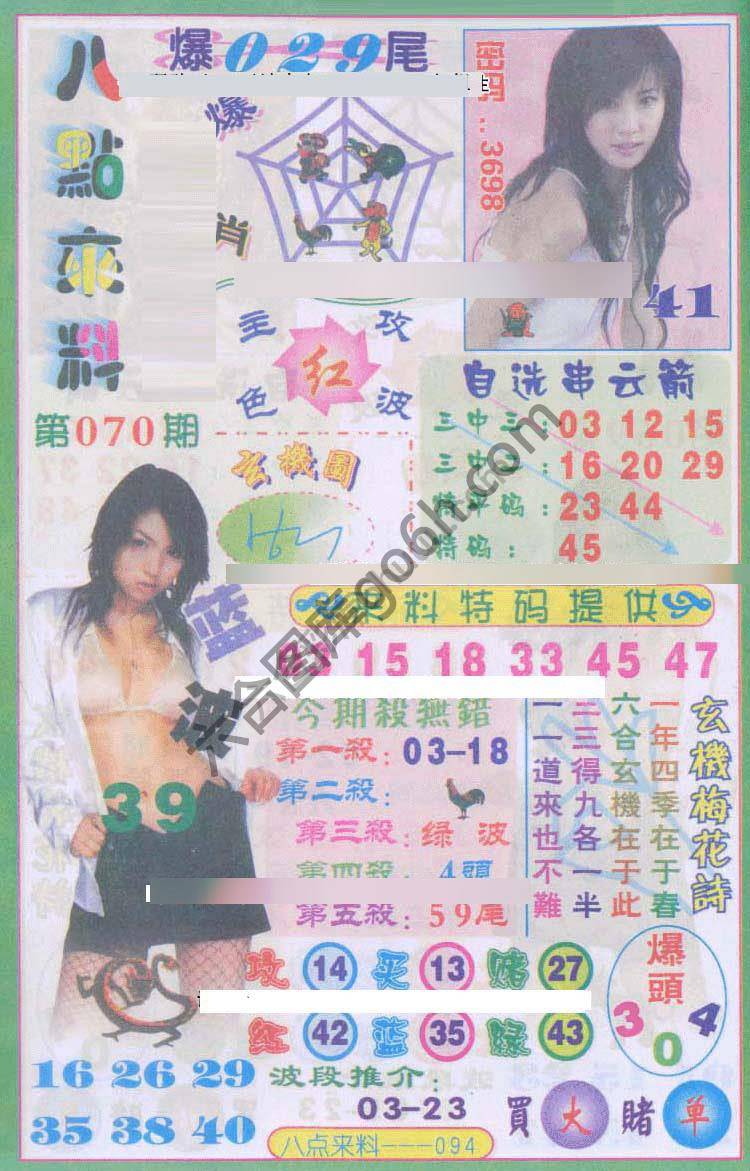 八點來料
爆029尾
爆
肖
密码:3698
41
主攻
红
色波
第070期
玄機圖
自选串云箭
三中三:03 12 15
三中三:16 20 29
特平码:23 44
特码:45
来料特码提供
15 18 33 45 47
蓝
波
39
今期殺無錯
第一殺:03-18
第二殺:
第三殺:绿波
第四殺:4頭
第五殺:59尾
玄機梅花詩
一年四季在于春
六合玄機在于此
三三得九各一半
一一道來也不難
攻14买13赌27
红42蓝35绿43
爆頭
3 0 4
16 26 29
35 38 40
波段推介:
03-23
買大賭单
八点来料---094
六合图库go6h.com